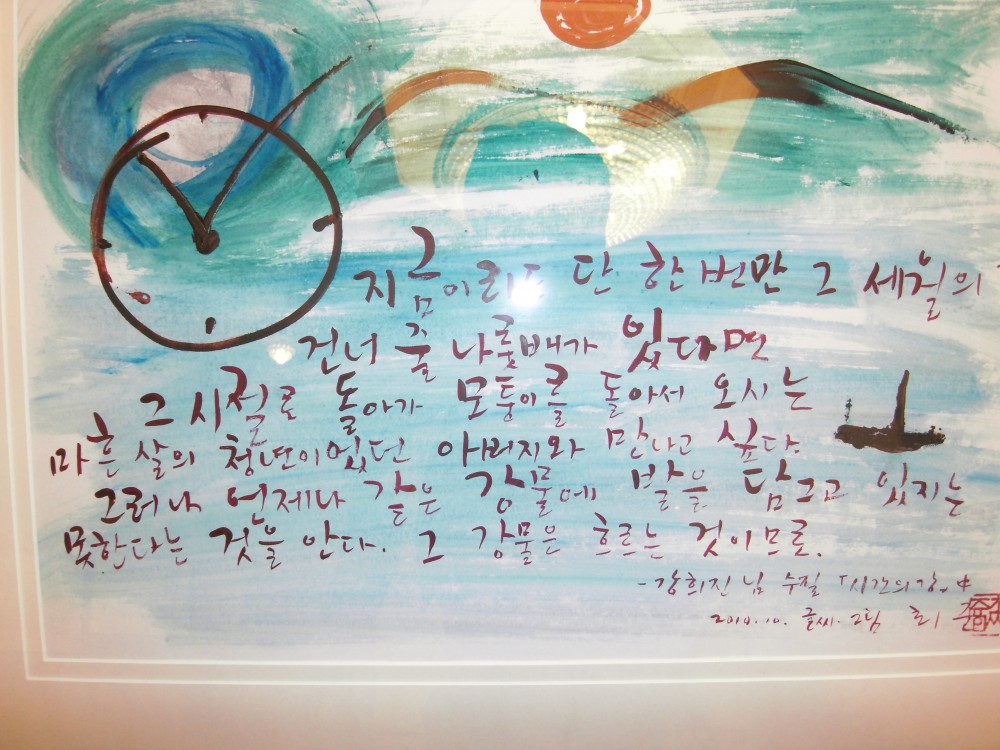 지금이라도 단 한번만 그 세월의
건너 줄 나룻배가 있다면
그 시절로 돌아가 모퉁이를 돌아서 오시는
마흔 살의 청년이었던 아버지와 만나고 싶다.
그러나 언제나 같은 강물에 발을 담그고 있지는
못한다는 것을 안다. 그 강물은 흐르는 것이므로.
- 강희진 님 수필 「시간의 강」中
2010.10. 글씨.그림